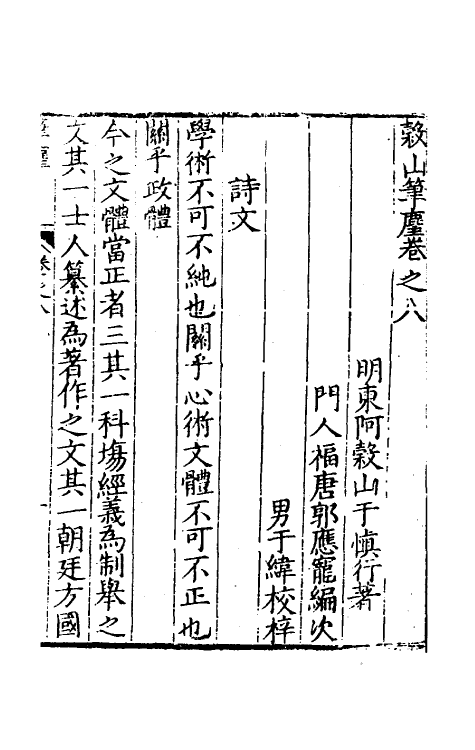 穀山筆麈卷之八
明東阿穀山于慎行著
門人福唐郭應寵編次
男于緯校梓
詩文
學術不可不純也關乎心術文體不可不正也
關乎政體
今之文體當正者三其一科塲經義為制舉之
文其一士人纂述為著作之文其一朝廷方國
筆麈 卷之八 一